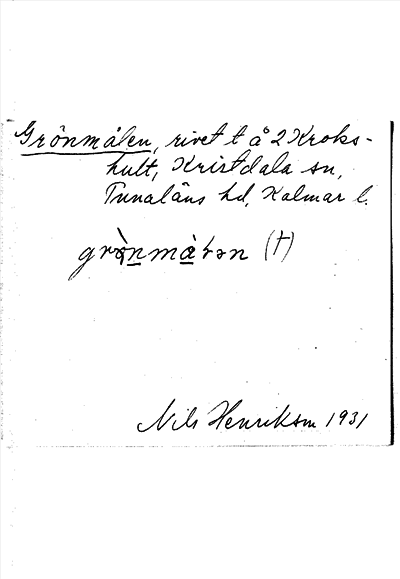 Grönmålen, rivet t å 2 Kroks-
hult, Kristdala sn,
Tunaläns hd, Kalmar l.
grò̀nmàlən (†)
Nils Henrikson 1931